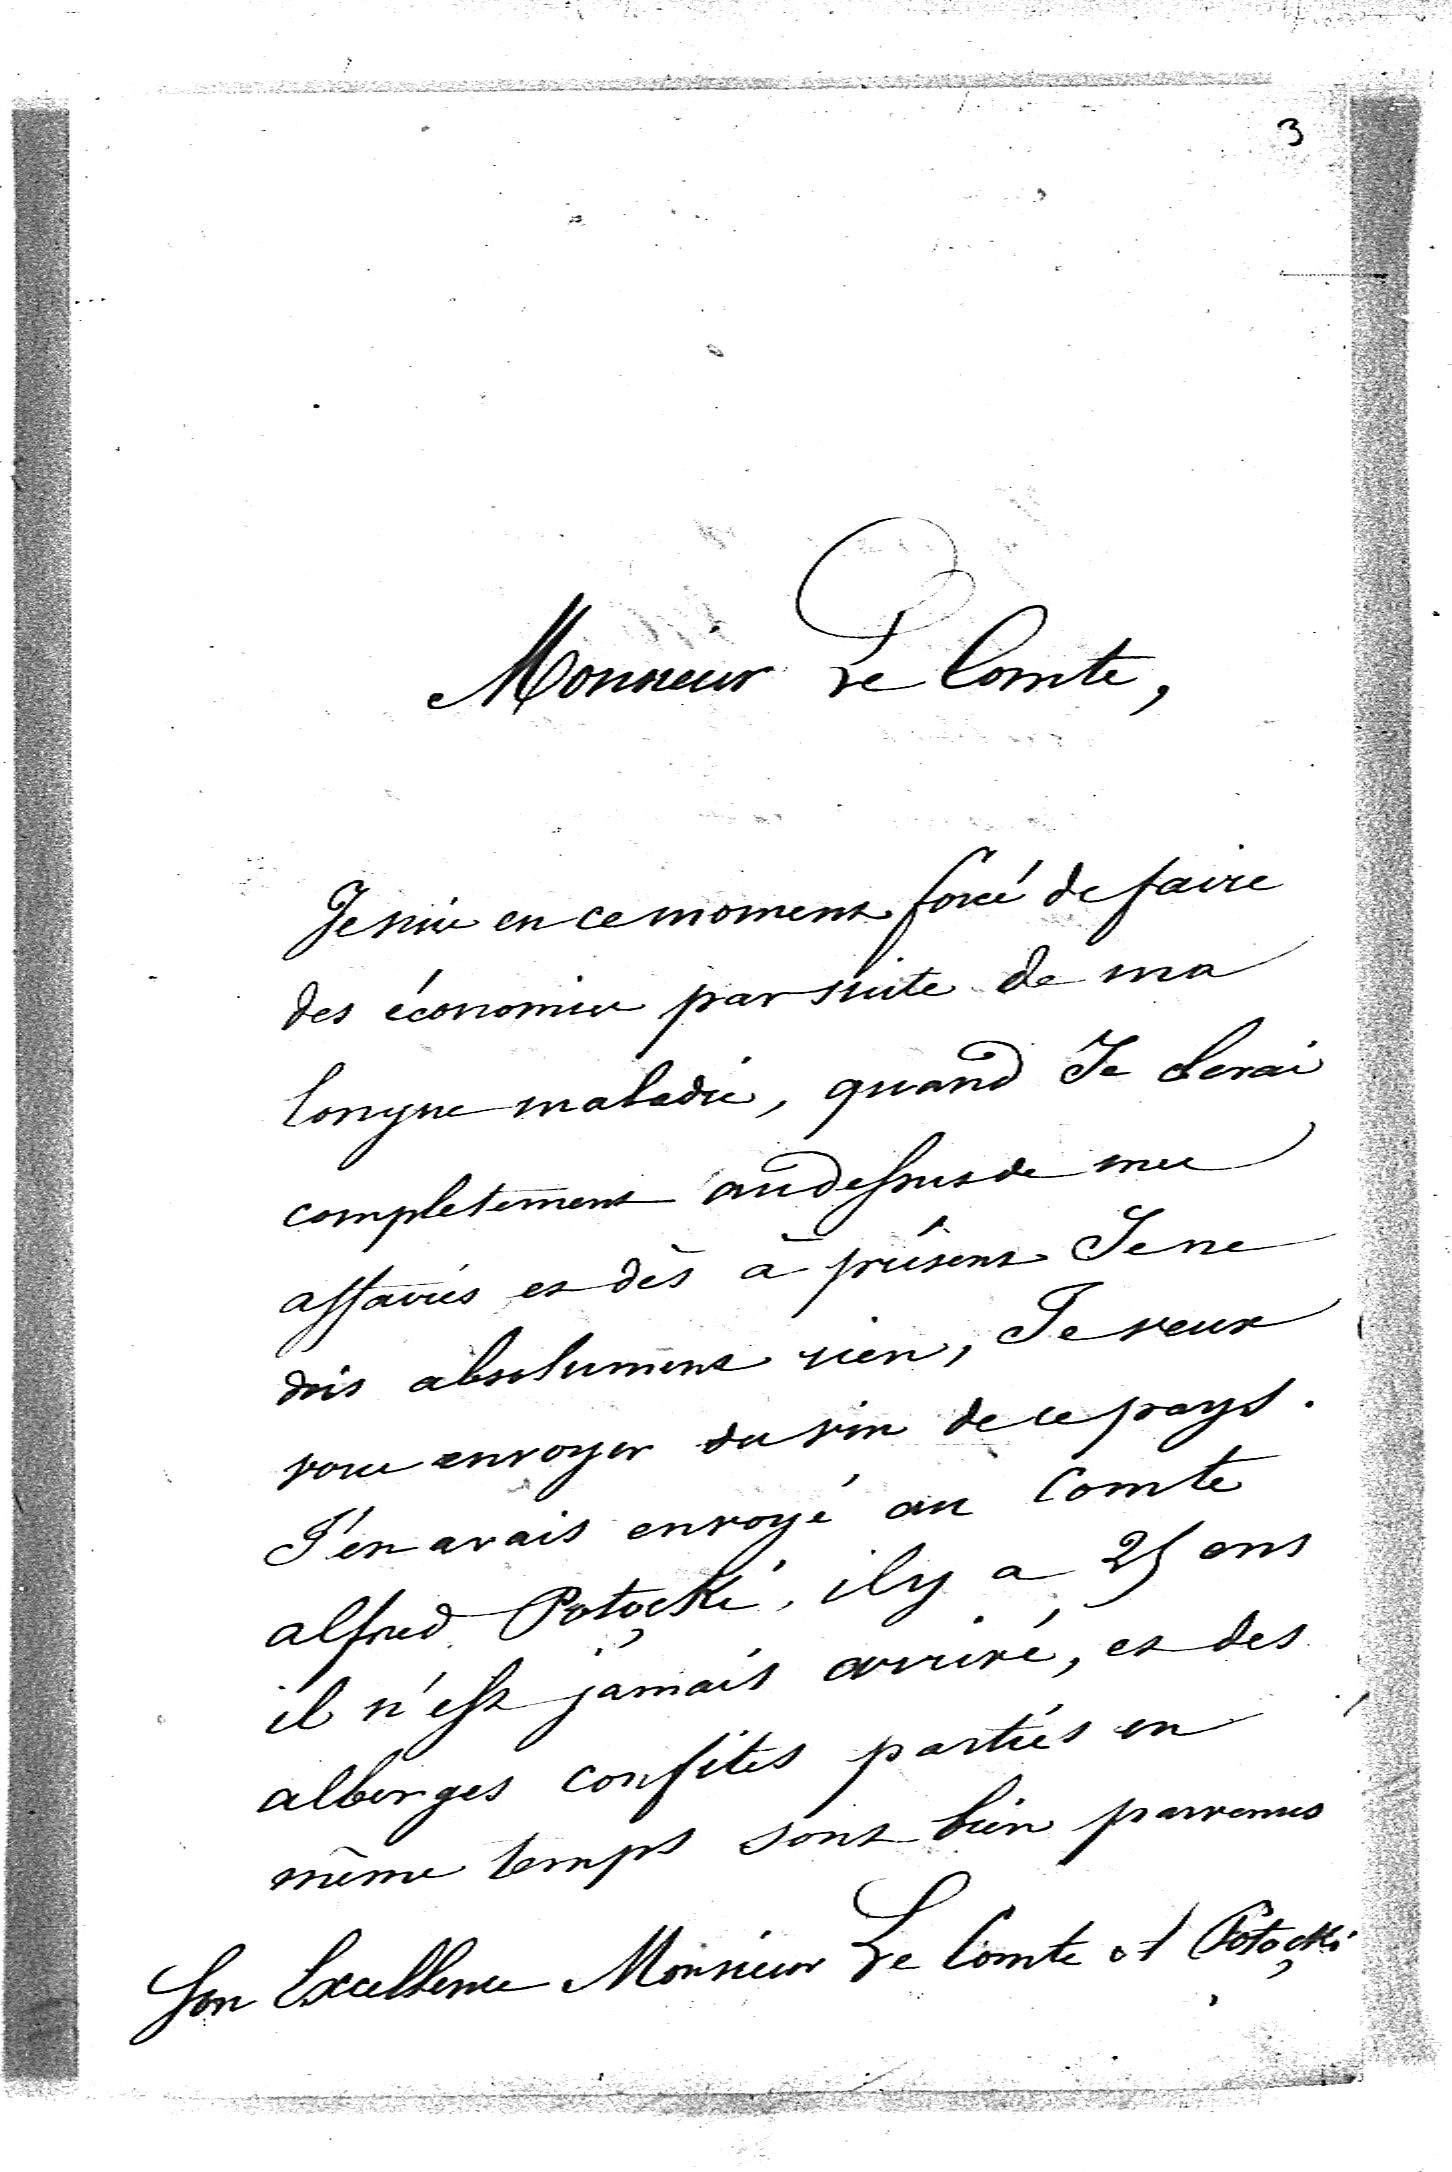 3
Monsieur Le Comte,
Je suis en ce moment forcé de faire
des économies par suite de ma
longue maladie, quand Je serai
completement au dessus de mes
affaires et dès à présent Je ne
dois absolument rien, Je veux
vous envoyer du vin de ce pays.
J'en avais envoyé au Comte
alfred Potocki, il y a 25 ans
il n'est jamais arrivé, et des
alberges confites parties en
même temps sont bien parvenues
Son Excellence Monsieur Le Comte A Potocki